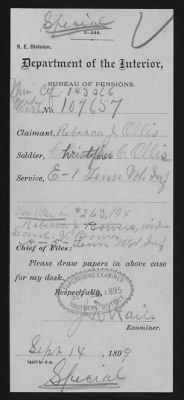 Special
3-386.
S. E. Division.
Department of the Interior,
BUREAU OF PENSIONS.
Min Ctf 143366
No. 107657
Claimant, Rebecca J. Ollis
Soldier, Christopher C Ollis
Service, E-1 Tenn Vol Inf
For Min in #263,194
Rebecca J. Bowers, widow
Tenn Vol Inf
Chief of Files:
Please draw papers in above case
for my desk.
Respectfully,
Examiner.
Sept 14, 1899
Special